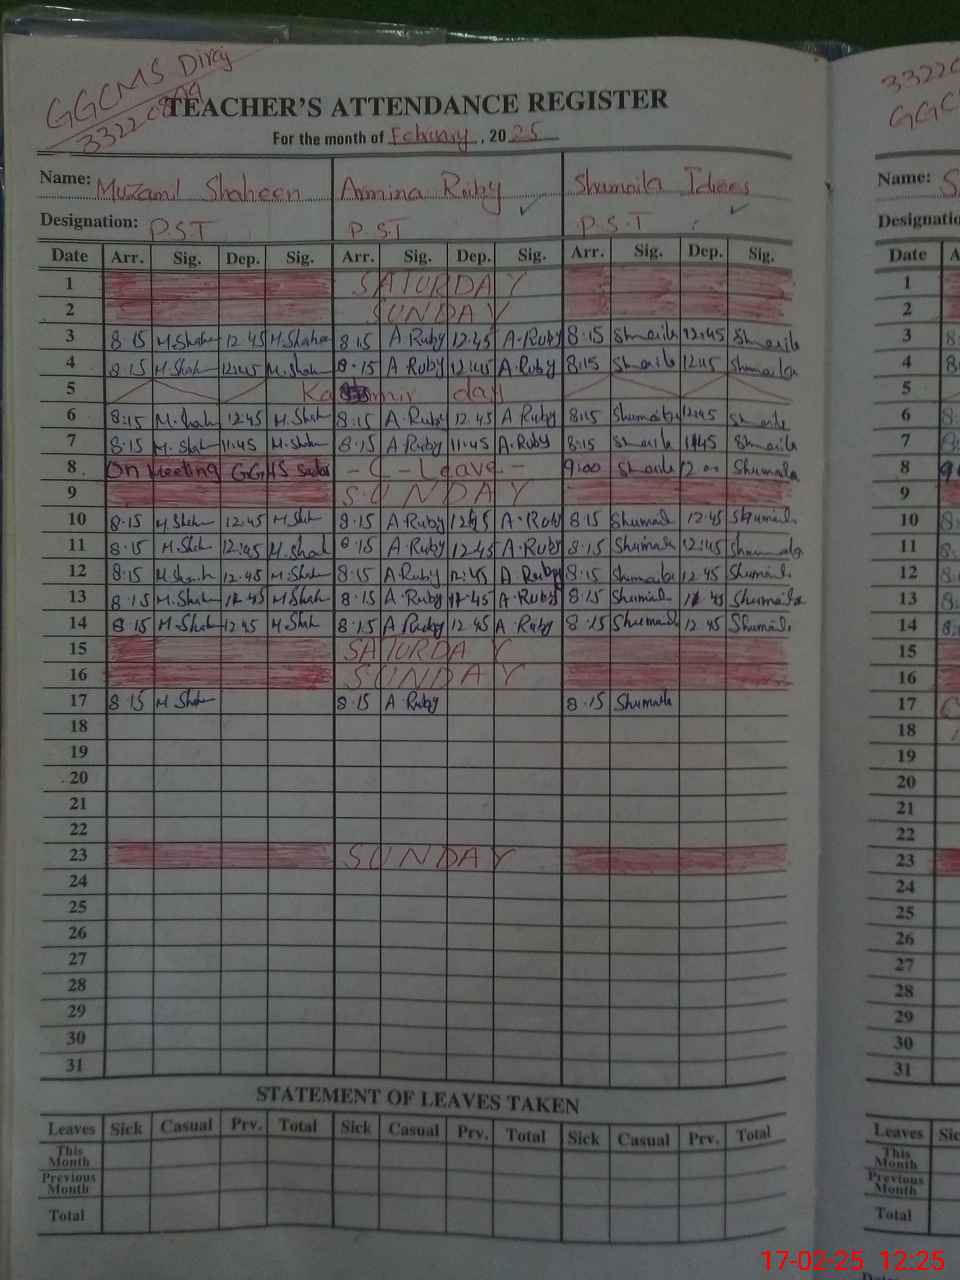 GGCMS Diraj
TEACHER'S ATTENDANCE REGISTER
For the month of February, 2025
Name: Muzamil Shaheen Ammina Ruby Shumaila Idrees
Designation: P.S.T P.S.T P.S.T
Date Arr. Sig. Dep. Sig. Arr. Sig. Dep. Sig. Arr. Sig. Dep. Sig.
1 SATURDAY
2 SUNDAY
3 8:15 M.Shah 12:45 M.Shahe 8:15 A Ruby 12:45 A-Ruby 8:15 Shmaila 12:45 Shmaila
4 8:15 M.Shah 12:45 M.Shah 8:15 A Ruby 12:45 A-Ruby 8:15 Shmaila 12:45 Shumaila
5 day
6 8:15 M.Shah 12:45 M.Shah 8:15 A-Ruby 12.45 A Ruby 8:15 Shumaila 12:45 Shmaila
7 8:15 M.Shah 11:45 M.Shah 8:15 A-Ruby 11:45 A-Ruby 8:15 Shmaila 11:45 Shmaila
8 On Meeting GGHS - C - Leave - 9:00 Shmaila 12:00 Shumaila
9 SUNDAY
10 8:15 M.Shah 12:45 M.Shah 8:15 A-Ruby 12:45 A-Ruby 8:15 Shumaila 12:45 Shumaila
11 8:15 M.Shah 12:45 M.Shah 8:15 A-Ruby 12:45 A-Ruby 8:15 Shumaila 12:45 Shumaila
12 8:15 M.Shah 12:45 M.Shah 8:15 A-Ruby 12:45 A Ruby 8:15 Shumaila 12:45 Shumaila
13 8:15 M.Shah 12:45 M.Shah 8:15 A-Ruby 12:45 A-Ruby 8:15 Shumaila 12:45 Shumaila
14 8:15 M.Shah 12:45 M.Shah 8:15 A Ruby 12:45 A-Ruby 8:15 Shumaila 12:45 Shumaila
15 SATURDAY
16 SUNDAY
17 8:15 M.Shah 8:15 A-Ruby 8:15 Shumaila
18
19
20
21
22
23 SUNDAY
24
25
26
27
28
29
30
31
STATEMENT OF LEAVES TAKEN
Leaves Sick Casual Prv. Total Sick Casual Prv. Total Sick Casual Prv. Total
This Month
Previous Month
Total
Name:
Date
1
2
3
4
5
6
7
8
9
10
11
12
13
14
15
16
17
18
19
20
21
22
23
24
25
26
27
28
29
30
31
Leaves
This Month
Previous Month
Total
17-02-25 12:25